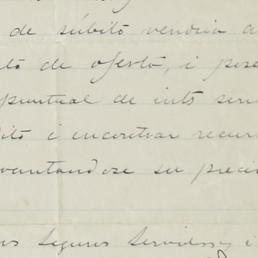 de súbito vendria a
de oferta, i pose
puntual de ints
dito i encontrar recur
vantandose su preci
Seguros Servidores, i